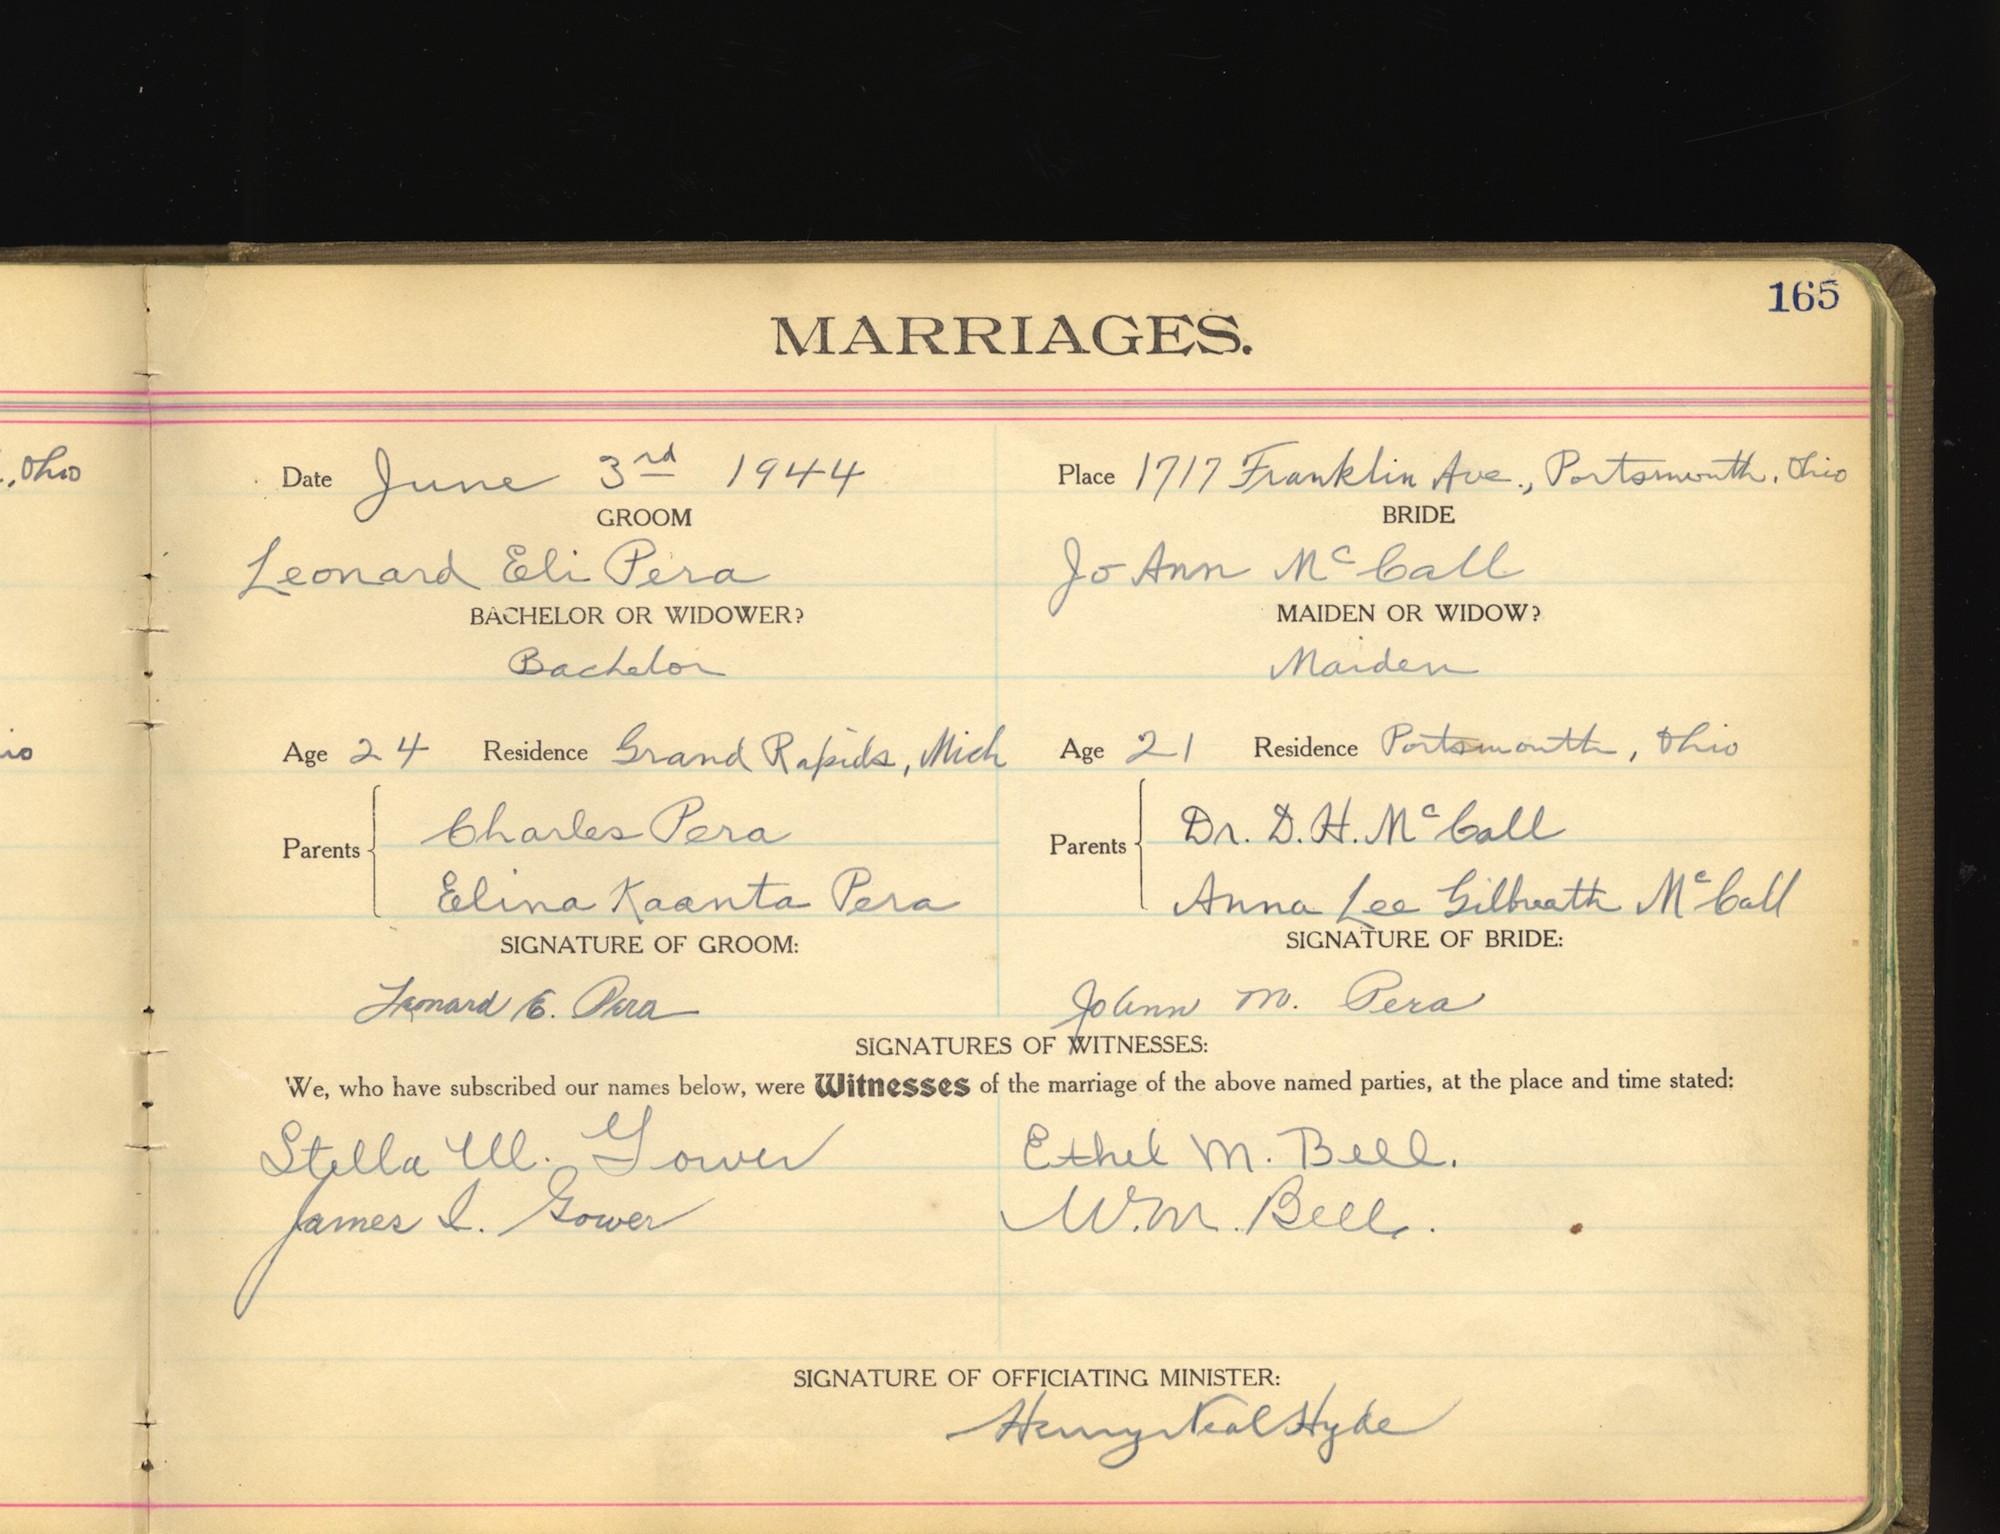 165
MARRIAGES.
, Ohio
Date June 3rd 1944
Place 1717 Franklin Ave., Portsmouth, Ohio
GROOM
BRIDE
Leonard Eli Pera
Jo Ann McCall
BACHELOR OR WIDOWER?
MAIDEN OR WIDOW?
Bachelor
Maiden
io
Age 24 Residence Grand Rapids, Mich
Age 21 Residence Portsmouth, Ohio
Parents
Charles Pera
Elina Kaanta Pera
Parents
Dr. D. H. McCall
Anna Lee Gilbreath McCall
SIGNATURE OF GROOM:
SIGNATURE OF BRIDE:
Leonard E. Pera
JoAnn M. Pera
SIGNATURES OF WITNESSES:
We, who have subscribed our names below, were Witnesses of the marriage of the above named parties, at the place and time stated:
Stella W. Gower
Ethel M. Bell.
James I. Gower
W. M. Bell.
SIGNATURE OF OFFICIATING MINISTER:
Henry Neal Hyde